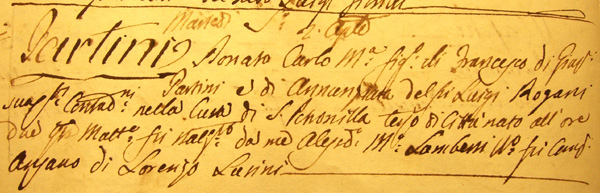 Martedì Sr. 4. Aple
Partini Donato Carlo Ma. figo. di Francesco di Giusi.
Partini e di Annunziata del fu Luigi Rogani
sua mi. Contadni. nella Cura di S. Petronilla terzo di Città nato all'ore
due Matta. fu da me Alesso. Ma. Lamberti fu Comp.
Ansano di Lorenzo Lurini